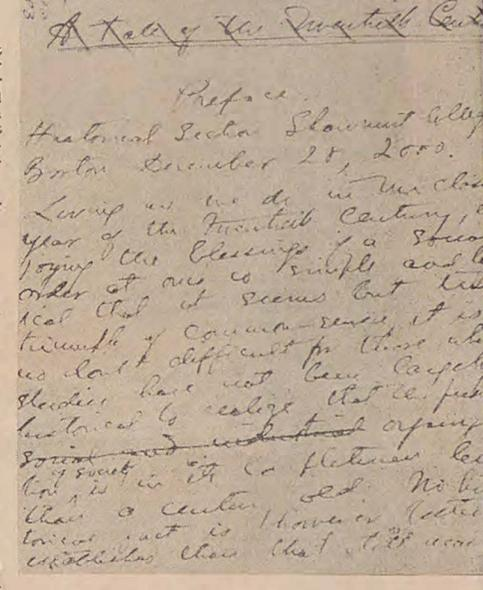 A Tale of the Twentieth Cent
Preface.
Historical Section Shawmut Colleg
Boston December 28, 2000.
Living as we do in the clos
year of the Twentieth Century,
joying the blessings of a social
order at once so simple and lo
ical that it seems but the
triumph of common-sense, it is
no doubt difficult for those who
studies have not been largel
historical to realize that the pres
social and industrial organiz
tion of society is in its completeness les
than a century old. No his
torical fact is however better
established than that till near